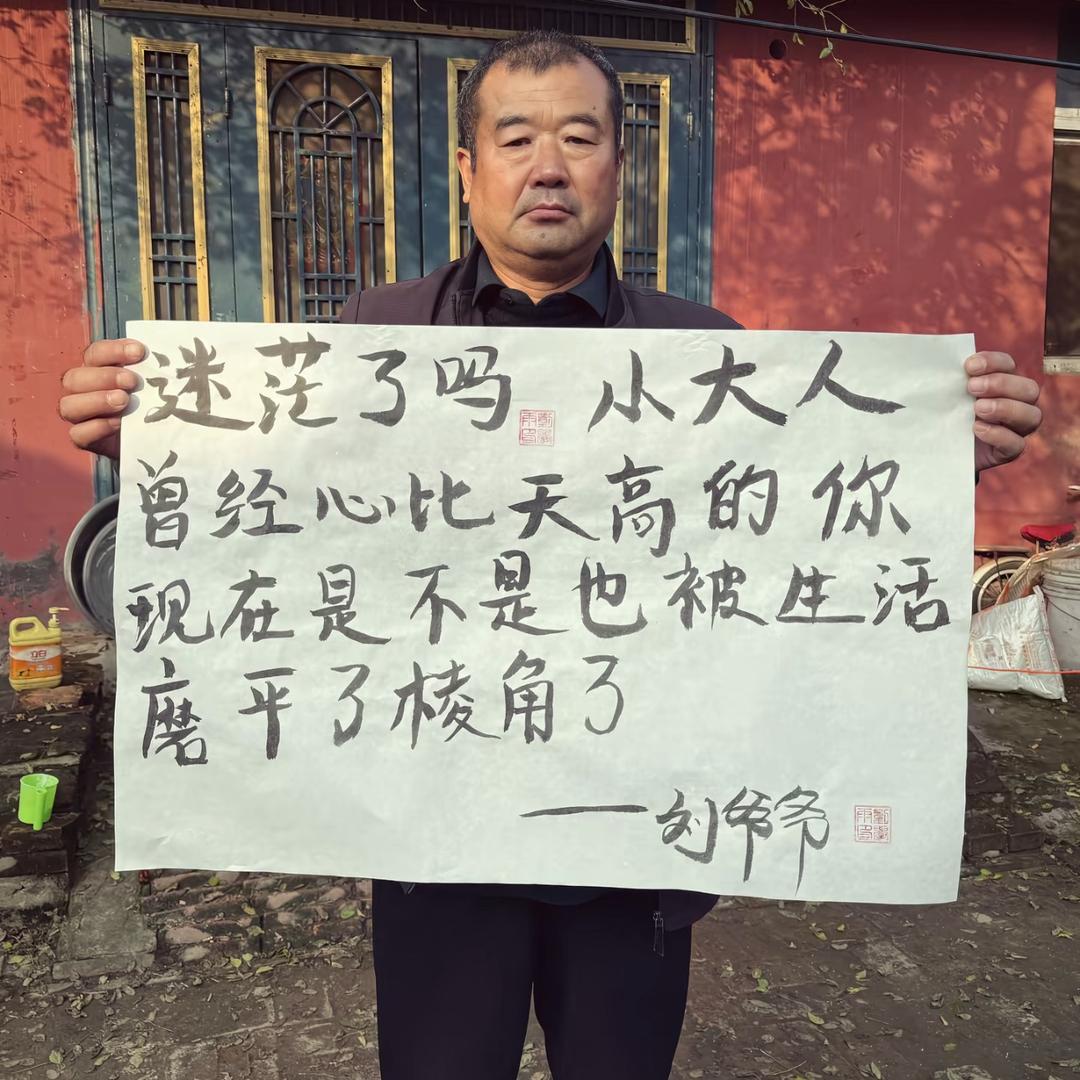 迷茫了吗 小大人
曾经心比天高的你
现在是不是也被生活
磨平了棱角了
——刘爷爷
立白